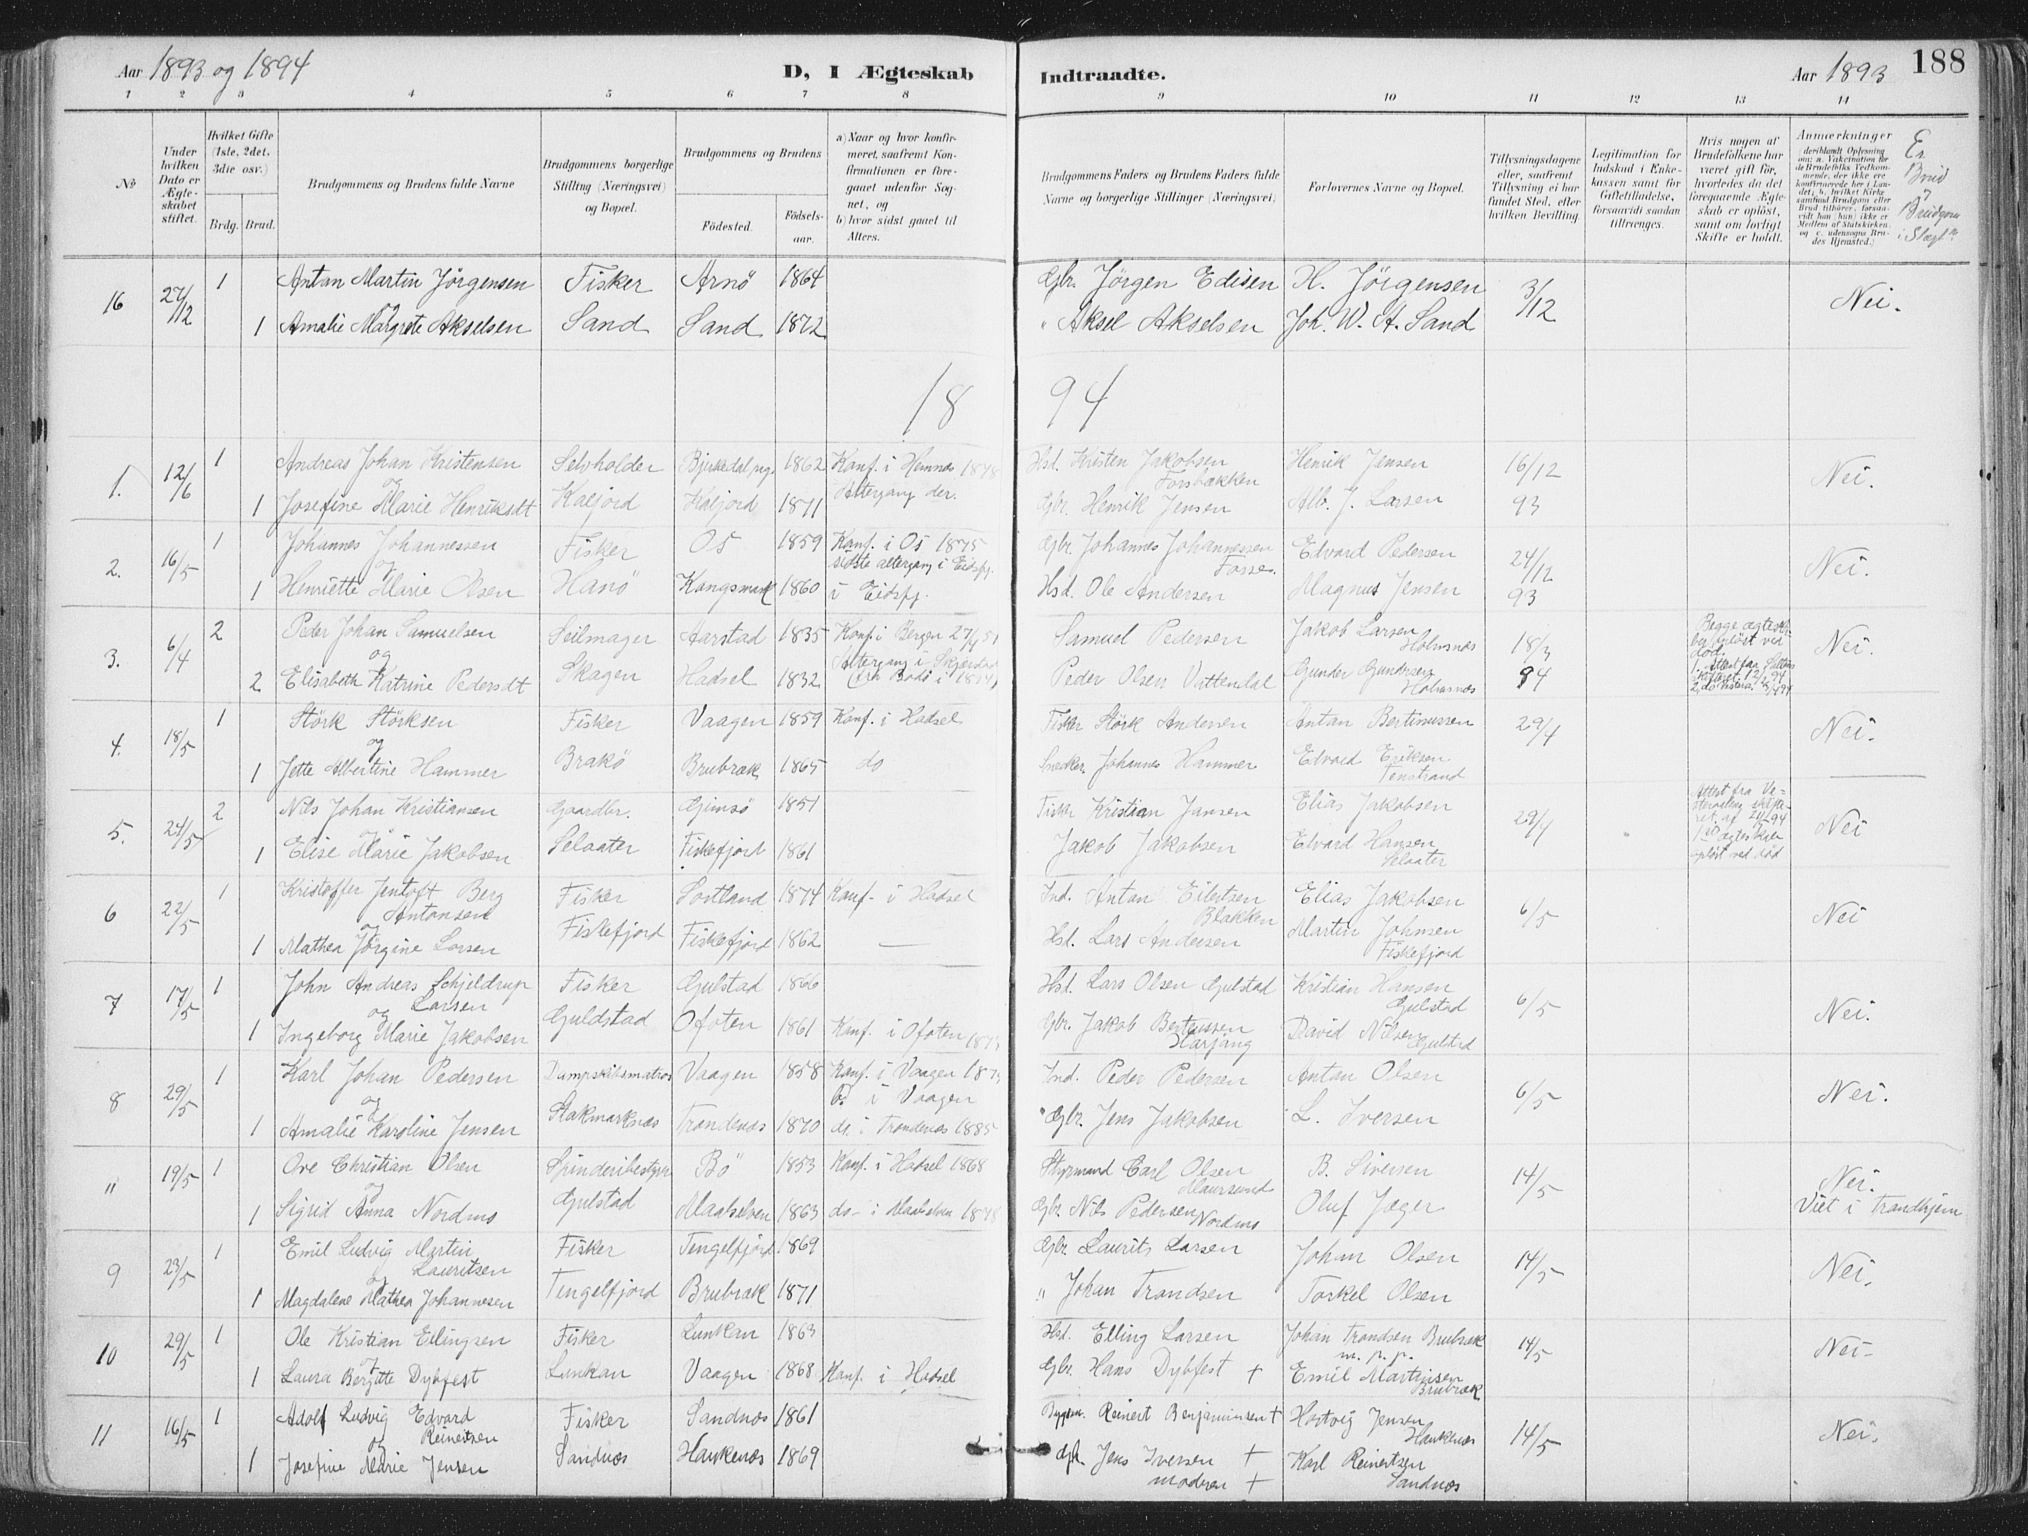 Aar 1893 og 1894
D, I Ægteskab Indtraadte.
Aar 1893 188
1 2 3 4 5 6 7 8 9 10 11 12 13 14
No
Under hvilken Dato er Ægteskabet stiftet.
Hvilket Gifte (1ste, 2det, 3die osv.)
Brdg. Brud.
Brudgommens og Brudens fulde Navne
Brudgommens borgerlige Stilling (Næringsvei) og Bopæl.
Brudgommens og Brudens
Fødested. Fødselsaar.
a) Naar og hvor konfirmeret, saafremt Konfirmationen er foregaaet udenfor Sognet, og
b) hvor sidst gaaet til Alters.
Brudgommens Faders og Brudens Faders fulde Navne og borgerlige Stillinger (Næringsvei)
Forlovernes Navne og Bopæl.
Tillysningsdagene eller, saafremt Tillysning ei har fundet Sted, efter hvilken Bevilling.
Legitimation for Indskud i Enkekassen samt for Giftetilladelse, forsaavidt saadan tiltrænges.
Hvis nogen af Brudefolkene har været gift før, hvorledes da det foregaaende Ægteskab er opløst, samt om lovligt Skifte er holdt.
Anmærkninger
Er Brud o Brudgom i Slægt
16 27/12 1 Antan Martin Jörgensen Fisker Arnö 1864 Gbr. Jörgen Edisen H. Jörgensen 3/12 Nei.
og
1 Amalie Margrete Akselsen Sand Sand 1872 " Aksel Akselsen Joh. W. A. Sand
1894
1. 12/6 1 Andreas Johan Kristensen Selvholder 1862 Konf. i Hemnæs 1878 Hsd. Kristen Jakobsen Forsbakken Henrik Jensen 16/12 Nei.
og
1 Josefine Marie Henriksdt Kaljord Kaljord 1871 Altergang der. Gbr. Henrik Jensen Alb. J. Larsen 93
2. 16/5 1 Johannes Johannessen Fisker Os 1859 Konf. i Os 1875 Gbr. Johannes Johannessen Fosse Edvard Pedersen 24/12 Nei.
og sidste altergang i Eidsfj.
1 Henriette Marie Olsen Hanö Kangsmark 1860 i Eidsfj. Hsd. Ole Andersen Magnus Jensen 93
3. 6/4 2 Peder Johan Samuelsen Seilmager Aarstad 1835 Konf. i Bergen Samuel Pedersen Jakob Larsen Holmsnæs 18/3 Nei.
og
2 Elisabeth Katrine Pedersdt Skagen Hadsel 1832 Peder Olsen Vattendal Gunder Gundersen Holmsnæs 94
4. 18/5 1 Störk Störksen Fisker Vaagen 1859 Konf. i Hadsel Fisker Störk Andersen Antan Bertinussen 29/4 Nei.
og
1 Jette Albertine Hammer Brakö Brubræk 1865 do Snedker. Johannes Hammer Edvard Eriksen Tenstrand
5. 24/5 2 Nils Johan Kristiansen Gaardbr. Gimsö 1851 Fisker Kristian Jansen Elias Jakobsen 29/4 Nei
og
1 Elise Marie Jakobsen Selaater Fiskefjord 1861 Jakob Jakobsen Edvard Hansen Selaater
6 22/5 1 Kristoffer Jentoft Berg Antonsen Fisker Sortland 1874 Konf. i Hadsel Ind. Antan Eilertsen Blakken Elias Jakobsen 6/5 Nei
og
1 Mathea Jørgine Larsen Fiskefjord Fiskefjord 1862 — Hsd. Lars Andersen Martin Johnsen Fiskefjord
7 17/5 1 John Andreas Schjeldrup Larsen Fisker Gulstad 1866 Hsd. Lars Olsen Gulstad Kristian Hansen Gulstad 6/5 Nei.
og
1 Ingeborg Marie Jakobsen Guldstad Ofoten 1861 Konf. i Ofoten Gbr. Jakob Bertnussen Harjang David Nilsen Gulstad
8 29/5 1 Karl Johan Pedersen Dampskibsmatros Vaagen 1858 Konf. i Vaagen 1873 Ind. Peder Pedersen Antan Olsen 6/5 Nei.
og i Vaagen
1 Amalie Karoline Jensen Stokmarknæs Trondenæs 1870 do. i Trondenæs 1885 Gbr. Jens Jakobsen L. Iversen
" 19/5 1 Ove Christian Olsen Spinderibestyrer Bö 1853 Konf. i Hadsel 1868 Styrmand Carl Olsen Maursund B. Siversen 14/5 Nei.
og
1 Sigrid Anna Nordmo Gulstad Maalselven 1863 do - i Maalselven 1878 Gbr. Nils Pedersen Nordmo Oluf Jæger Viet i Trondhjem
9 23/5 1 Emil Ludvig Martin Lauritsen Fisker Tengelfjord 1869 Gbr. Laurits Larsen Johan Olsen 14/5 Nei.
og
1 Magdalene Mathea Johannesen Tengelfjord Brubræk 1871 " Johan Trondsen Torkel Olsen
10 29/5 1 Ole Kristian Ellingsen Fisker Lunkan 1863 Hsd. Elling Larsen Johan Trondsen Brubræk m. p. p. 14/5 Nei-
og
1 Laura Bergitte Dybfest Lunkan Vaagen 1868 Konf. i Hadsel Gbr. Hans Dybfest + Emil Martinsen Brubræk
11 16/5 1 Adolf Ludvig Edvard Reinertsen Fisker Sandnæs 1861 Reinert Benjaminsen + Hartvig Jensen Haukenæs 14/5 Nei.
og
1 Josefine Marie Jensen Sandnæs Haukenæs 1869 Gbr. Jens Iversen + Karl Reinertsen Sandnæs
modren +